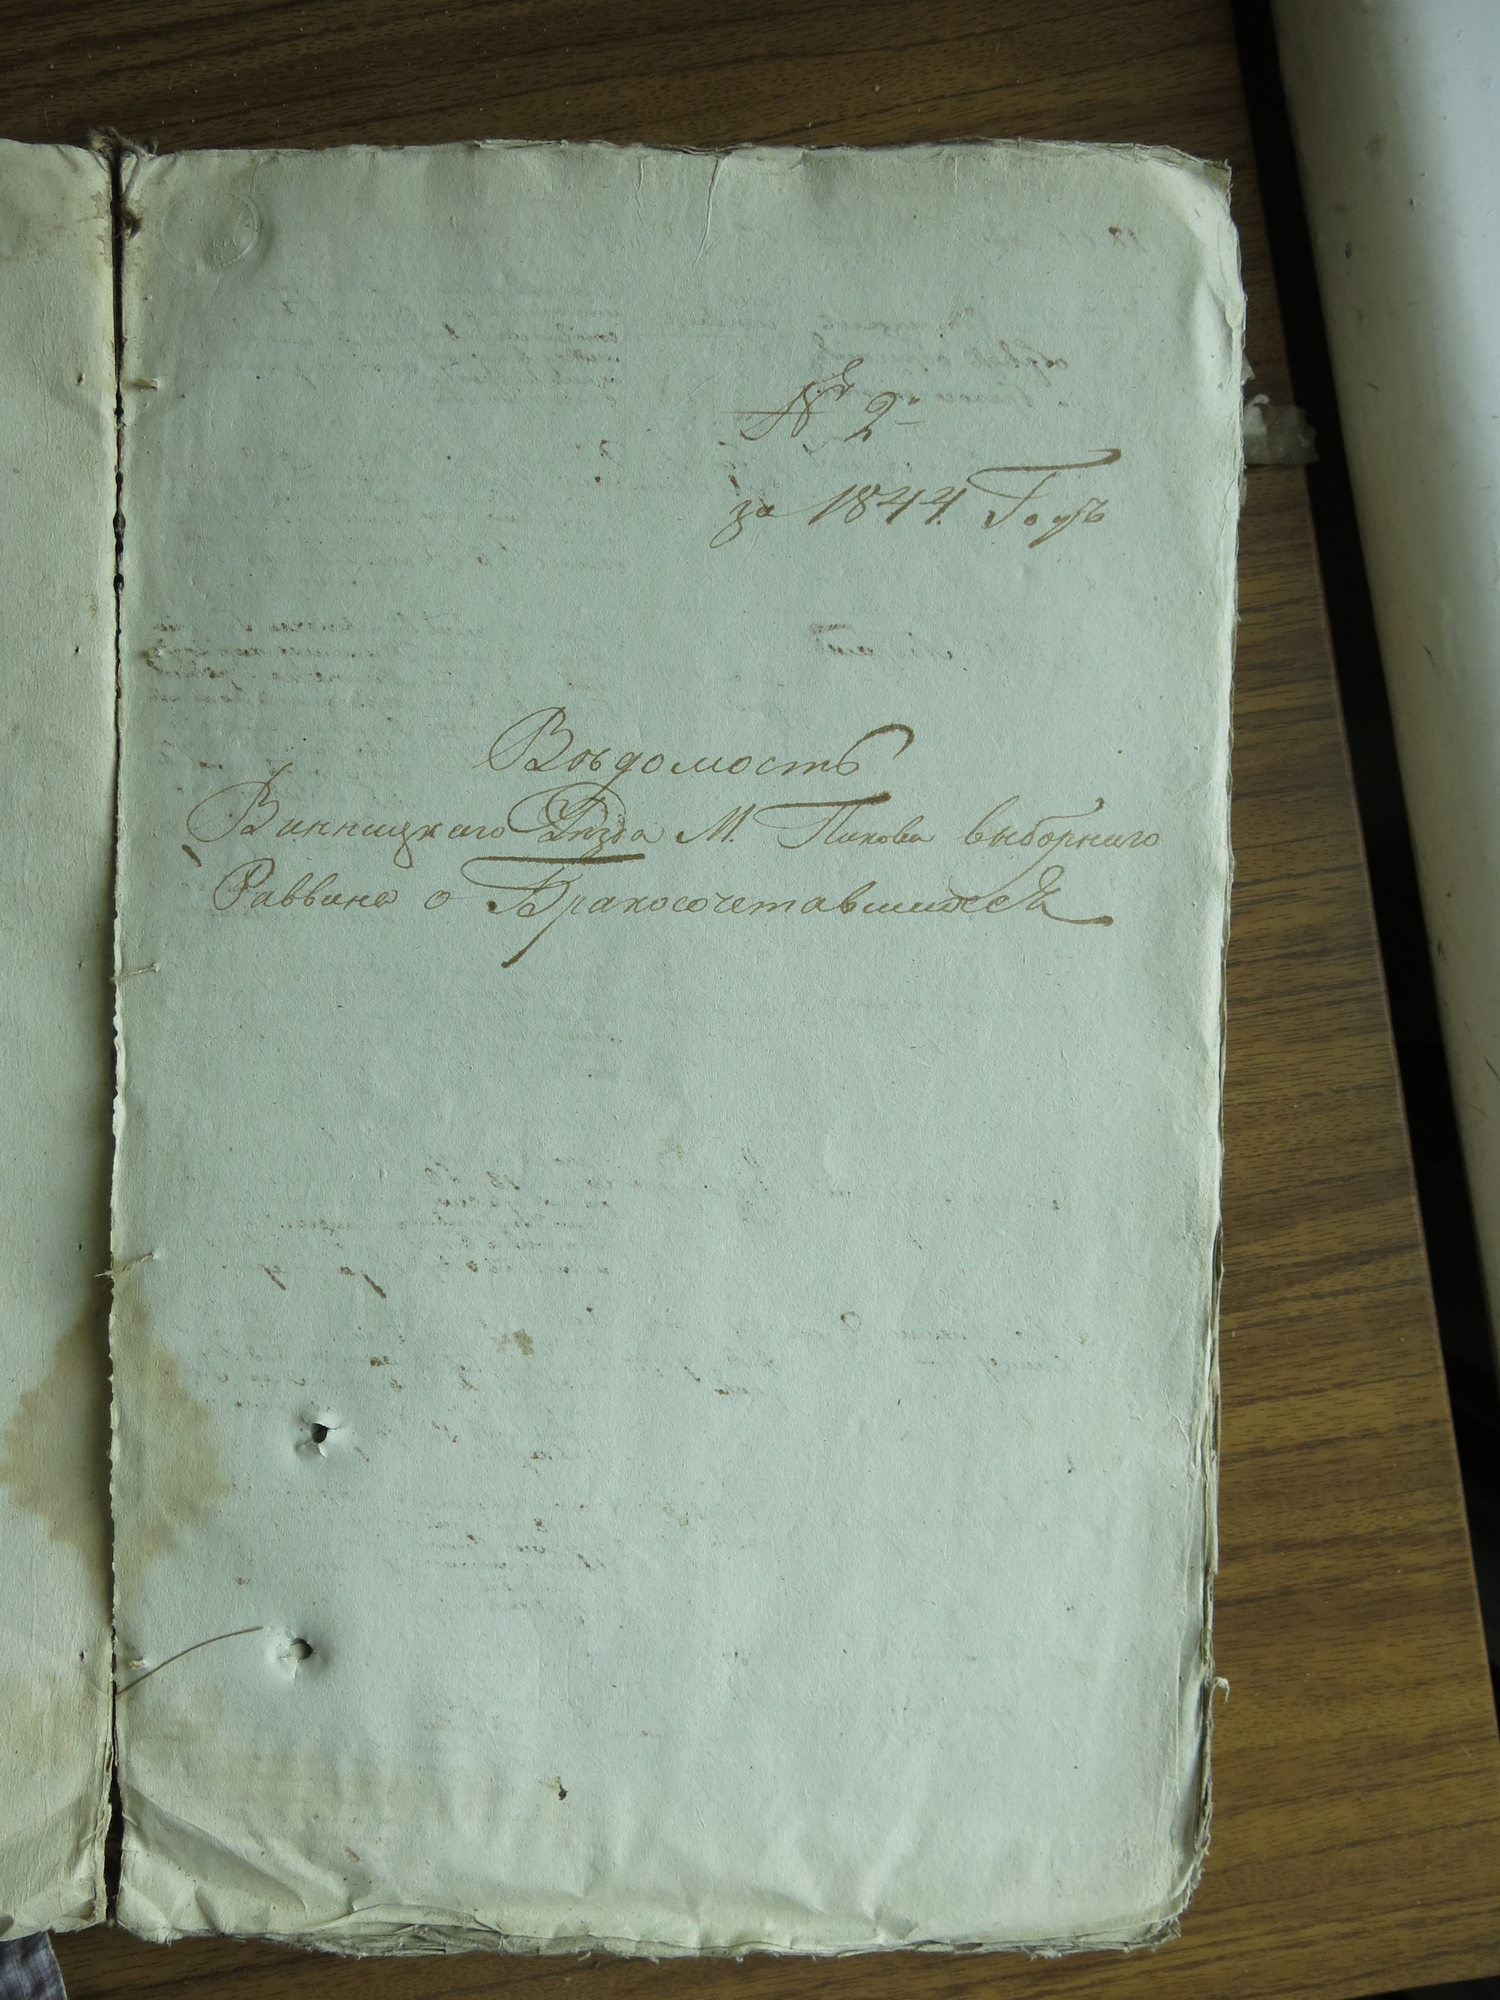 № 2
за 1844. Годъ
Вѣдомость
Винницкаго Уѣзда М. Пикова выборнаго
Раввина о Бракосочетавшихся